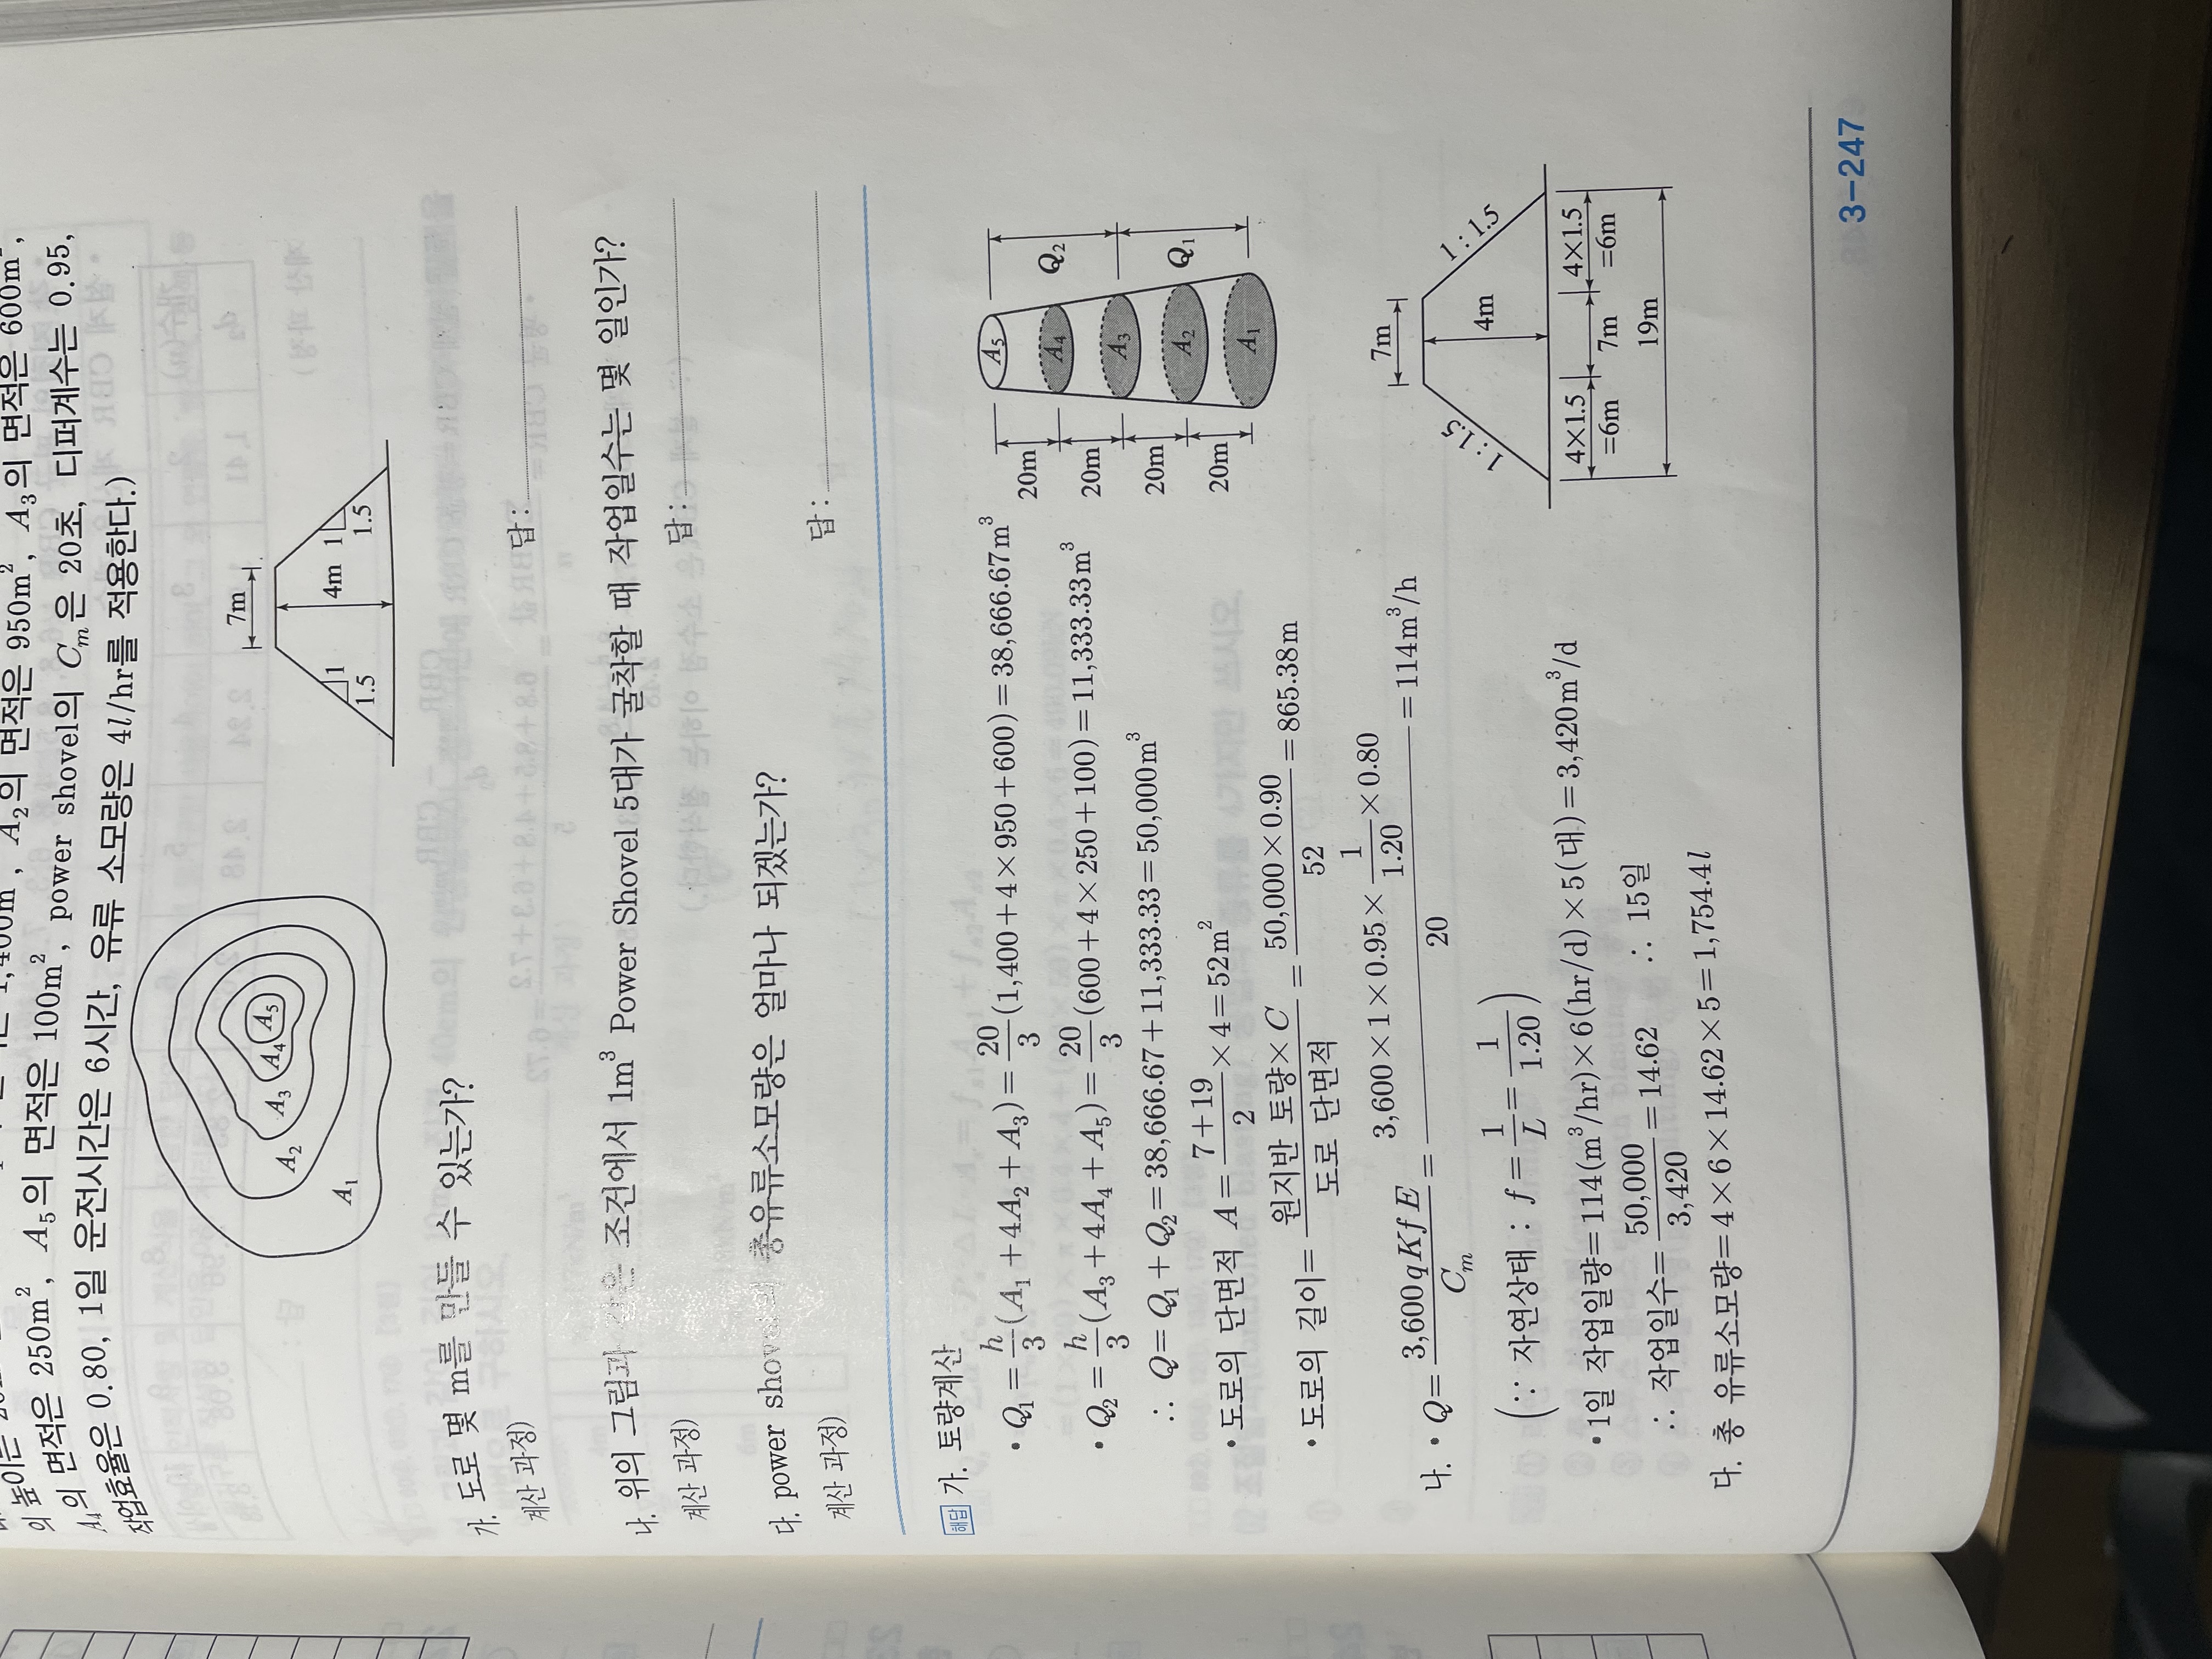 의 높이는
1,400m², A₂의 면적은 950m², A₃의 면적은 600m²,
의 면적은 250m², A₅의 면적은 100m², power shovel의 Cₘ은 20초, 디퍼계수는 0.95,
작업효율은 0.80, 1일 운전시간은 6시간, 유류 소모량은 4l/hr를 적용한다.)
A₁
A₂
A₃
A₄
A₅
7m
4m
1
1.5
1
1.5
가. 도로 몇 m를 만들 수 있는가?
계산 과정)
답:
나. 위의 그림과 같은 조건에서 1m³ Power Shovel 5대가 굴착할 때 작업일수는 몇 일인가?
계산 과정)
답:
다. power shovel의 총유류소모량은 얼마나 되겠는가?
계산 과정)
답:
해답 가. 토량계산
• Q₁ = h/3 (A₁+4A₂+A₃) = 20/3 (1,400+4×950+600) = 38,666.67m³
• Q₂ = h/3 (A₃+4A₄+A₅) = 20/3 (600+4×250+100) = 11,333.33m³
∴ Q = Q₁+Q₂ = 38,666.67+11,333.33 = 50,000m³
• 도로의 단면적 A = (7+19)/2 ×4 = 52m²
• 도로의 길이 = (원지반 토량×C)/도로 단면적 = (50,000×0.90)/52 = 865.38m
A₅
A₄
A₃
A₂
A₁
20m
20m
20m
20m
Q₂
Q₁
나. • Q = 3,600qKfE/Cₘ = (3,600×1×0.95×1/1.20×0.80)/20 = 114m³/h
(∵ 자연상태 : f = 1/L = 1/1.20)
• 1일 작업일량 = 114(m³/hr)×6(hr/d)×5(대) = 3,420m³/d
∴ 작업일수 = 50,000/3,420 = 14.62 ∴ 15일
다. 총 유류소모량 = 4×6×14.62×5 = 1,754.4l
7m
1 : 1.5
4m
1 : 1.5
4×1.5
=6m
7m
4×1.5
=6m
19m
3-247